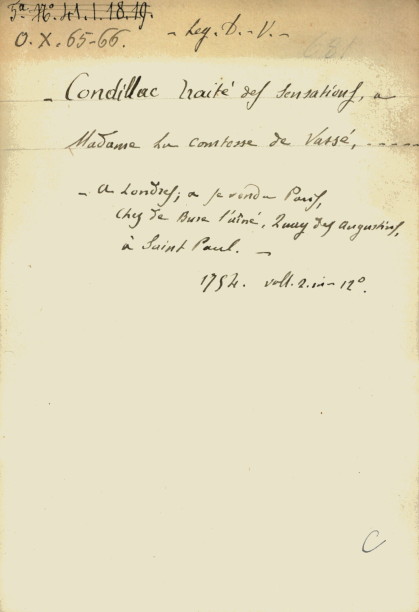 5ª. Nº. 41. I. 18. 19.
O. X. 65-66.
- Leg. D. - V. -
- Condillac traité des sensations, a
Madame La comtesse de Vassé, -----
- A Londres; & se vend a Paris,
Chez de Bure l'aîné, Quay des Augustins,
à Saint Paul. -
1754. voll. 2. in - 12º.
C